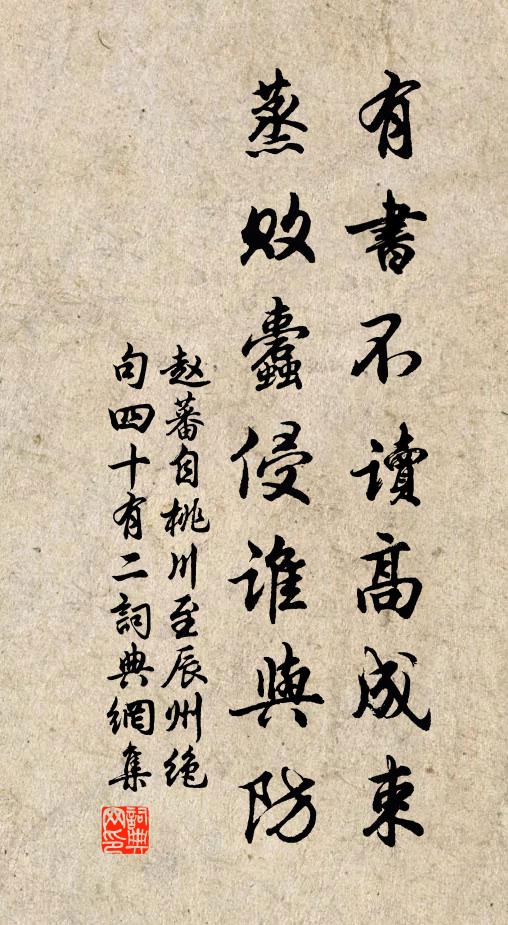 有書不讀高成束
蒸敗蠹侵誰與防
赵蕃自桃川至辰州绝
句四十有二詞典網集
詞典
网印